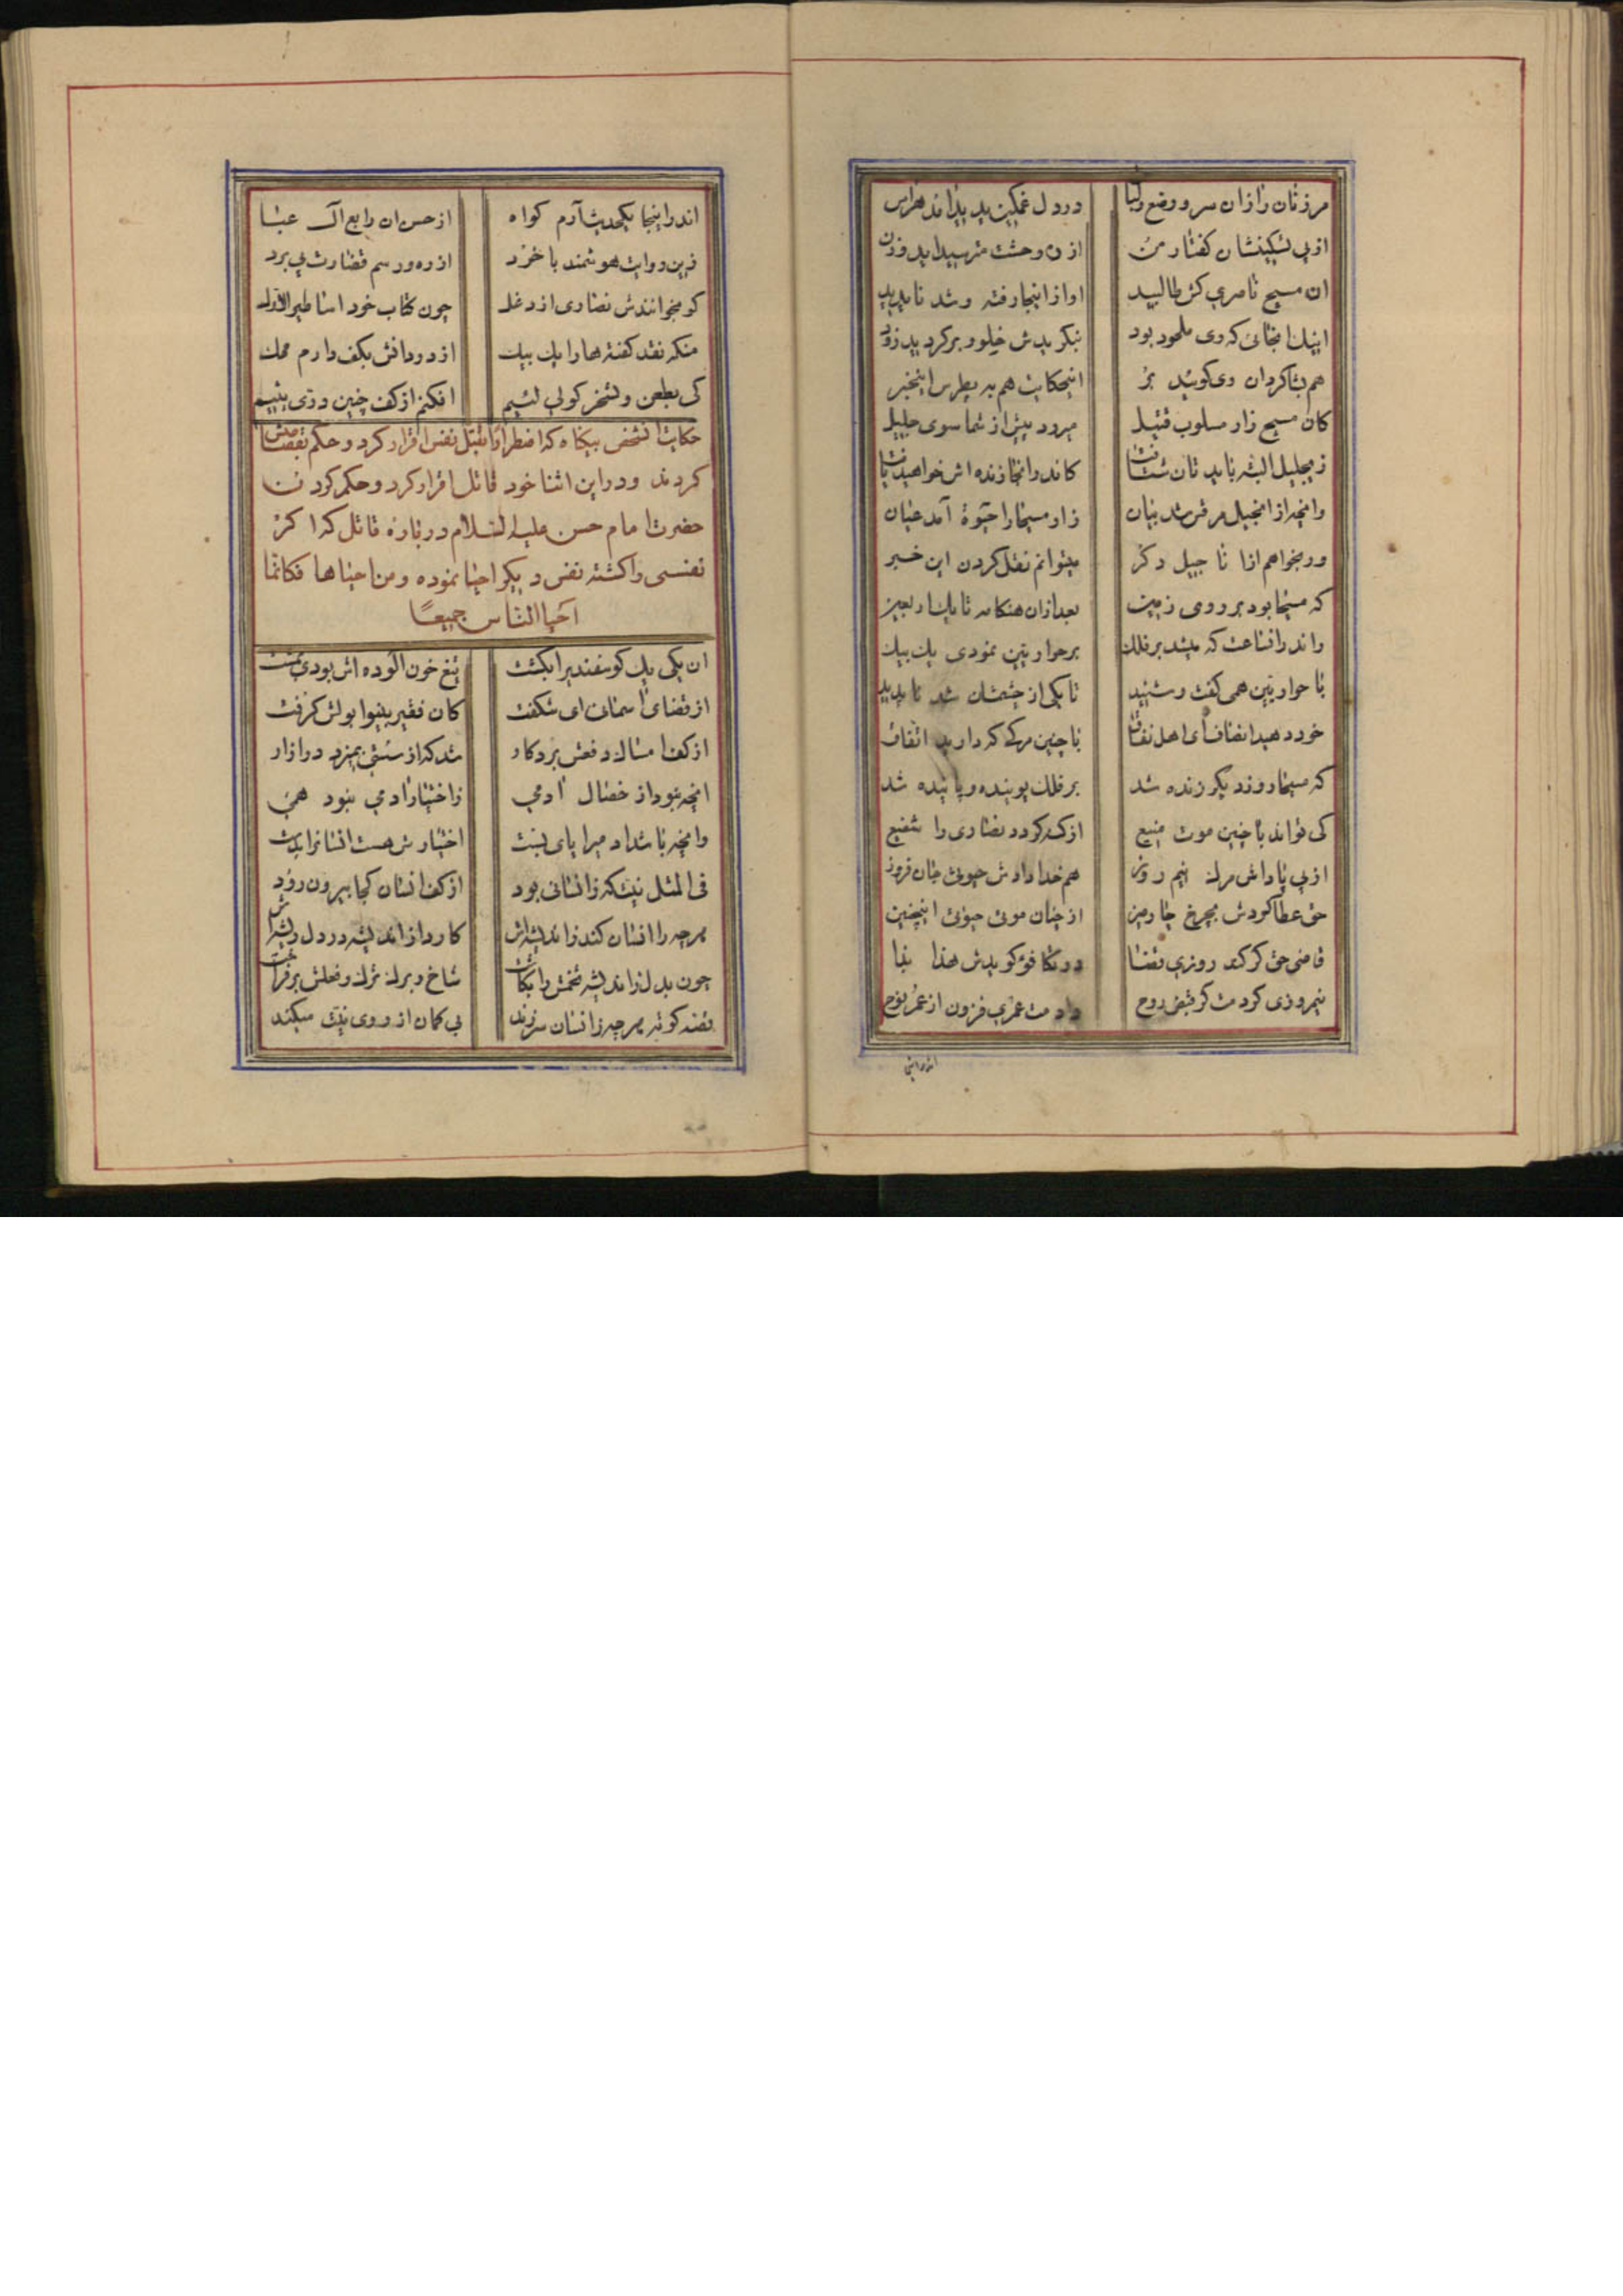 مر زنان را زان سر و وضع و لباس در دل غمگین پدید اند هراس
از پی تسکینشان گفتار من از وحشت مترسید اید وزن
ان مسیح ناصری کش طالبید او از اینجا رفته و شد ناپدید
اینک انجائی که وی ملحود بود بنگریدش خیلو و برگردید زود
هم بشاگردان وی گوئید بر اینحکایت هم به پطرس اینخبر
کان مسیح زار مسلوب قتیل میرود پیش از شما سوی جلیل
زی جلیل البته باید تان شتافت کاندر انجا زنده اش خواهید یافت
وانچه از انجیل مرقس شد بیان زان مسیحا را حیوة آمد عیان
ور بخواهم از انا جیل دگر میتوانم نقل کردن این خبر
که مسیحا بود بر روی زمین بعد ازان هنگامه تا یک اربعین
واندر انساعت که میشد بر فلک بر حواریین نمودی یک بیک
با حواریین همی گفت و شنید تا یکی از چشمشان شد ناپدید
خود دهید انصاف ای اهل نفاق با چنین مرگی که دارید اتفاق
که مسیحا روز دیگر زنده شد بر فلک پوینده و پاینده شد
کی تواند با چنین موت منیع از که گردد نصاری را شفیع
از پی پاداش مرگ نیم روز هم خدا دادش حیوتی جان فروز
حق عطا کردش بچرخ چارمین از چنان موتی حیوتی اینچنین
قاضی حق گر کند روزی قضا در تکافو گویدش هذا بذا
نیمروزی کردمت گر قبض روح دادمت عمری فزون از عمر نوح
اندر اینجا
اندر اینجا یکحدیث آرم گواه از حسن ان رابع آل عبا
زین روایت هوشمند با خرد از ره و رسم قضاوت پی برد
کو نخوانندش نصاری از دغل چون کتاب خود اساطیر الاول
منکه نقد گفته ها را یک بیک از در دانش بکف دارم محک
کی بطعن و تسخر گولی لئیم افکنم از کف چنین دری یتیم
حکایت انشخص بیگناه که اضطرارا بقتل نفس اقرار کرد و حکم بقصاصش
کردند و در این اثنا خود قاتل اقرار کرد و حکم کردن
حضرت امام حسن علیه السلام در باره قاتل که اگر
نفسی را کشته نفس دیگر احیا نموده و من احیاها فکانما
احیا الناس جمیعًا
ان یکی یک گوسفندیرا بکشت تیغ خون الوده اش بودی بمشت
از قضای اسمانی ای شگفت کان فقیر بینوا بولش گرفت
از کف امساک دفعش برد کار شد که از سستی بمیزد در ازار
انچه نبود از خصال ادمی ز اختیار ادمی نبود همی
وانچه باشد ادمیرا پای بست اختیارش هست انسانرا بدست
فی المثل نیت که ز انسانی بود از کف انسان کجا بیرون رود
هرچه را انسان کند ز اندیشه اش کارد از اندیشه در دل ریشه اش
چون بدل ز اندیشه تخمش را بکاشت شاخ و برگ ترک و فعلش بر فراشت
قصه کوته هرچه ز انسان سر زند بی گمان از روی نیت میکند